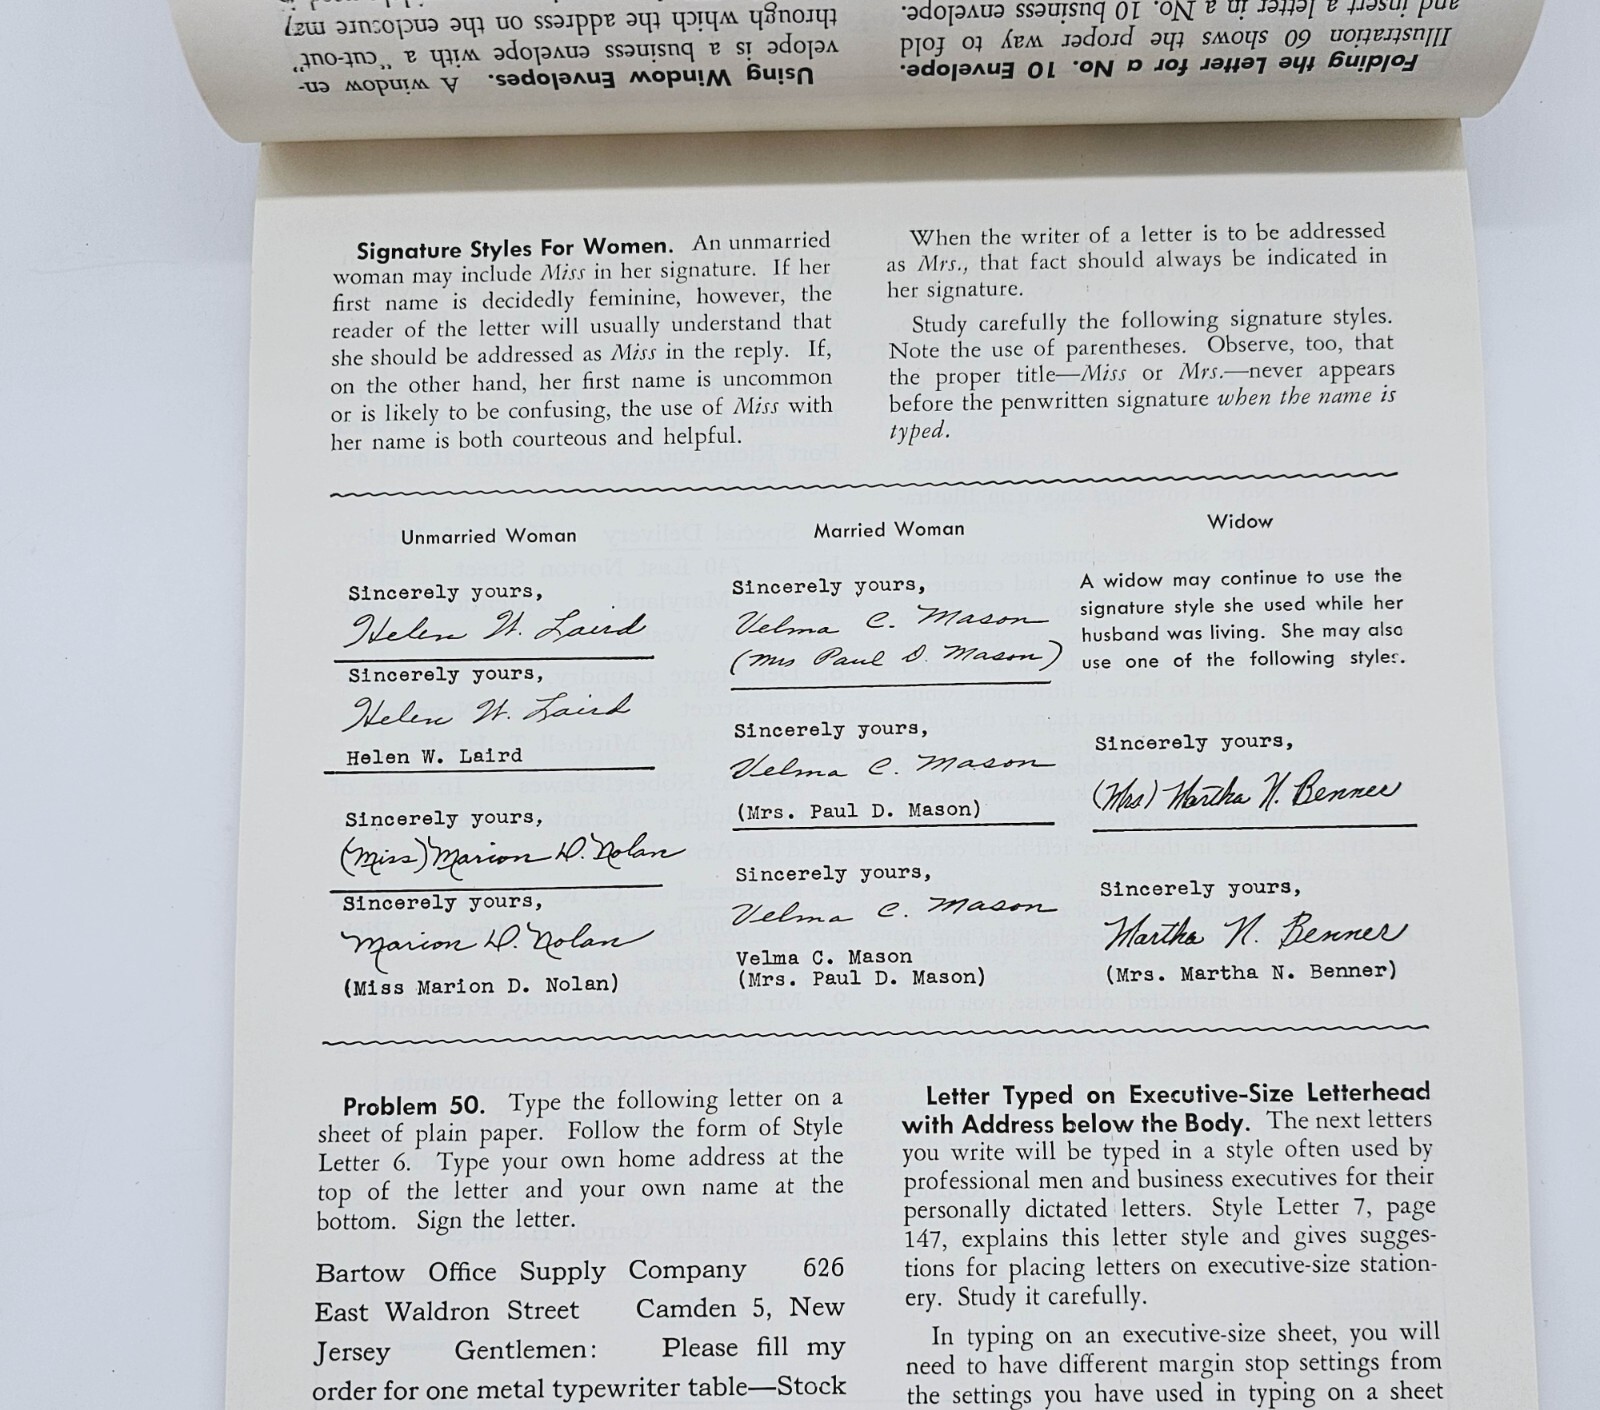 Folding the Letter for a No. 10 Envelope.
Illustration 60 shows the proper way to fold
and insert a letter in a No. 10 business envelope.
Using Window Envelopes. A window en-
velope is a business envelope with a "cut-out"
through which the address on the enclosure may
Signature Styles For Women. An unmarried
woman may include Miss in her signature. If her
first name is decidedly feminine, however, the
reader of the letter will usually understand that
she should be addressed as Miss in the reply. If,
on the other hand, her first name is uncommon
or is likely to be confusing, the use of Miss with
her name is both courteous and helpful.
When the writer of a letter is to be addressed
as Mrs., that fact should always be indicated in
her signature.
Study carefully the following signature styles.
Note the use of parentheses. Observe, too, that
the proper title—Miss or Mrs.—never appears
before the penwritten signature when the name is
typed.
Unmarried Woman
Sincerely yours,
Helen W. Laird
Sincerely yours,
Helen W. Laird
Helen W. Laird
Sincerely yours,
(Miss) Marion D. Nolan
Sincerely yours,
Marion D. Nolan
(Miss Marion D. Nolan)
Married Woman
Sincerely yours,
Velma C. Mason
(Mrs Paul D. Mason)
Sincerely yours,
Velma C. Mason
(Mrs. Paul D. Mason)
Sincerely yours,
Velma C. Mason
Velma C. Mason
(Mrs. Paul D. Mason)
Widow
A widow may continue to use the
signature style she used while her
husband was living. She may also
use one of the following styles.
Sincerely yours,
(Mrs) Martha N. Benner
Sincerely yours,
Martha N. Benner
(Mrs. Martha N. Benner)
Problem 50. Type the following letter on a
sheet of plain paper. Follow the form of Style
Letter 6. Type your own home address at the
top of the letter and your own name at the
bottom. Sign the letter.
Bartow Office Supply Company 626
East Waldron Street Camden 5, New
Jersey Gentlemen: Please fill my
order for one metal typewriter table—Stock
Letter Typed on Executive-Size Letterhead
with Address below the Body. The next letters
you write will be typed in a style often used by
professional men and business executives for their
personally dictated letters. Style Letter 7, page
147, explains this letter style and gives sugges-
tions for placing letters on executive-size station-
ery. Study it carefully.
In typing on an executive-size sheet, you will
need to have different margin stop settings from
the settings you have used in typing on a sheet